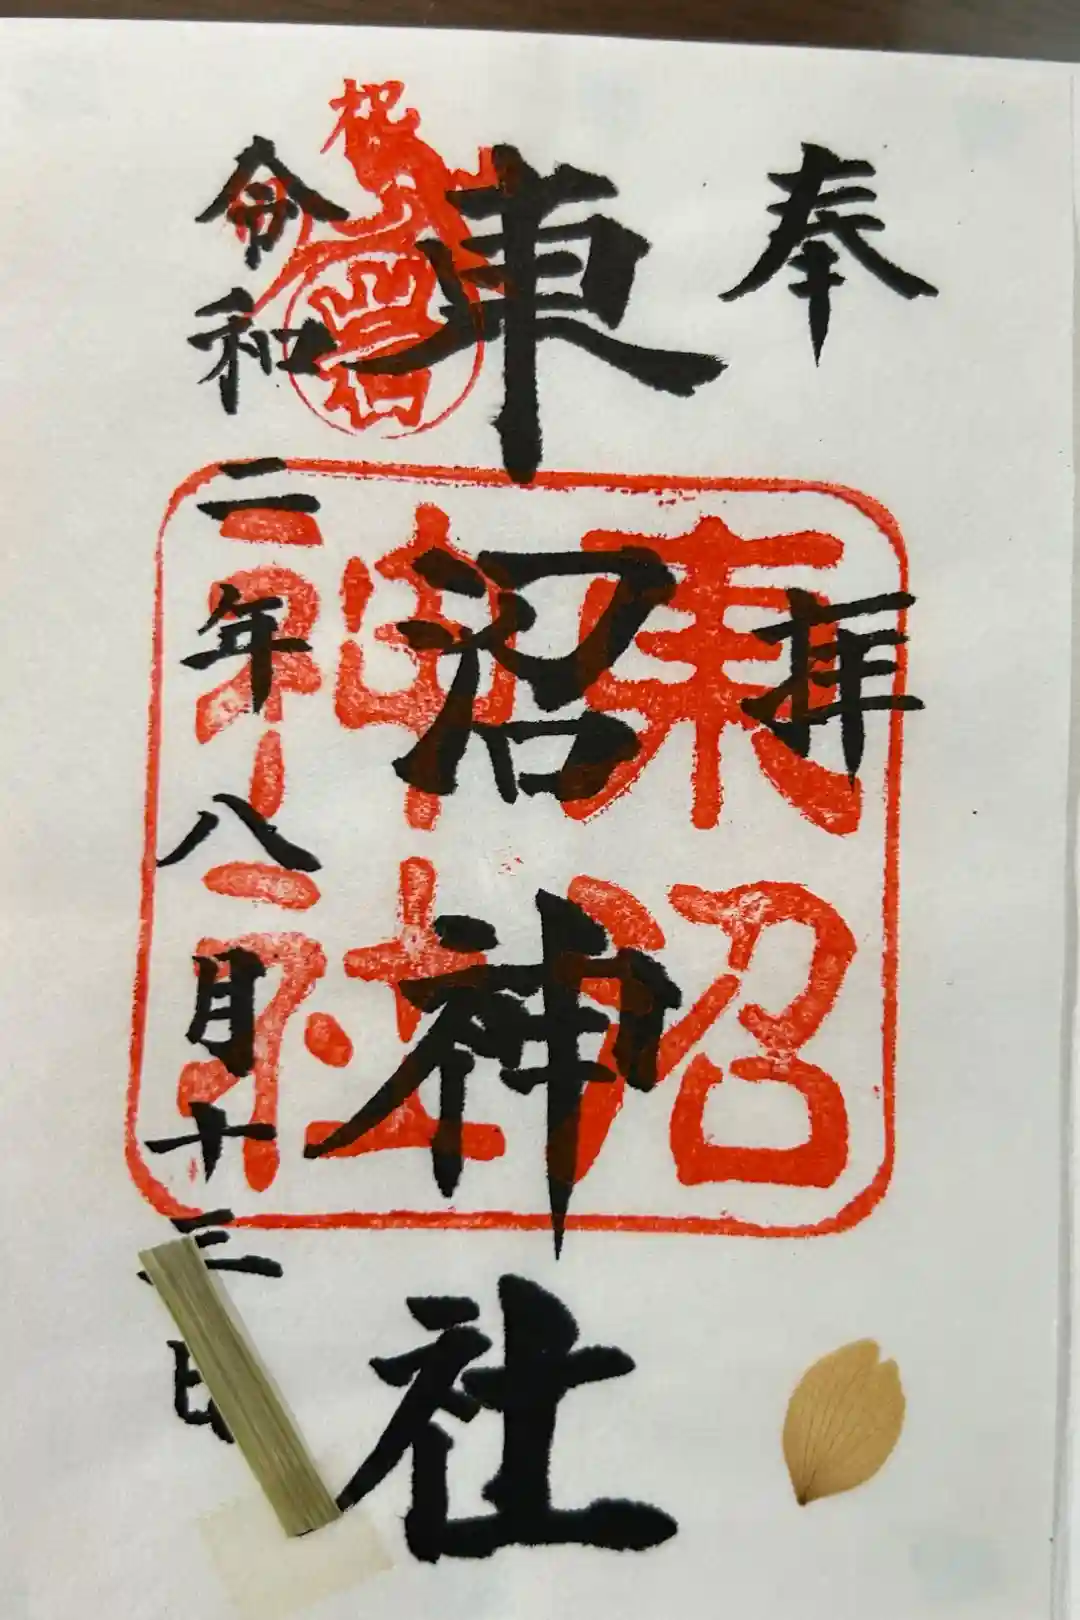 奉拝
東沼神社
令和二年八月十三日
祝
東沼
神社